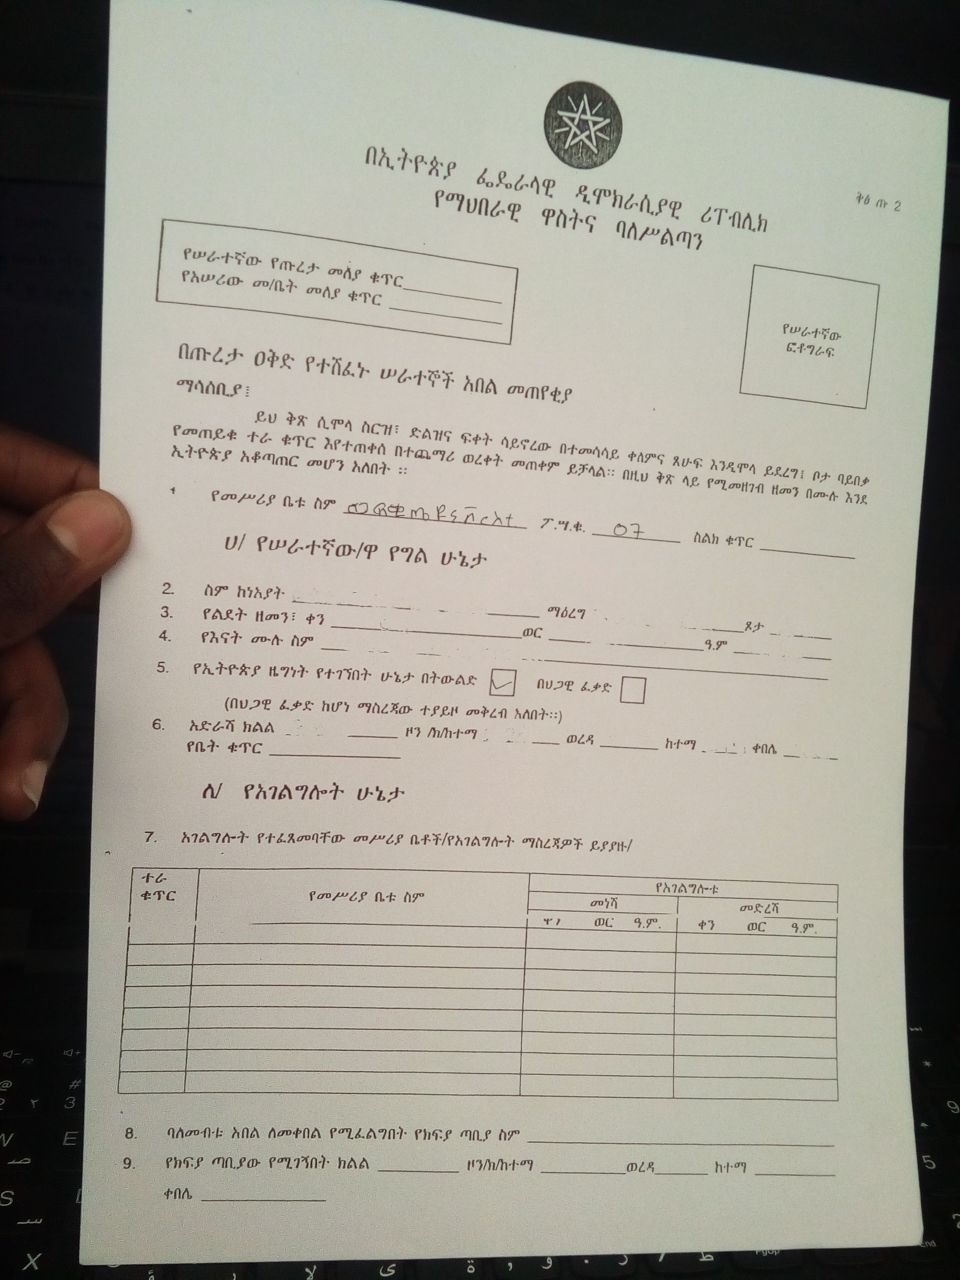 በኢትዮጵያ ፌዴራላዊ ዲሞክራሲያዊ ሪፐብሊክ
የማህበራዊ ዋስትና ባለሥልጣን
ቅፅ ጡ 2
የሠራተኛው የጡረታ መለያ ቁጥር
የአሠሪው መ/ቤት መለያ ቁጥር
የሠራተኛው
ፎቶግራፍ
በጡረታ ዐቅድ የተሸፈኑ ሠራተኞች አበል መጠየቂያ
ማሳሰቢያ፤
ይህ ቅጽ ሲሞላ ስርዝ፣ ድልዝና ፍቀት ሳይኖረው በተመሳሳይ ቀለምና ጸሁፍ እንዲሞላ ይደረግ፤ ቦታ ባይበቃ
የመጠይቁ ተራ ቁጥር እየተጠቀሰ በተጨማሪ ወረቀት መጠቀም ይቻላል። በዚህ ቅጽ ላይ የሚመዘገብ ዘመን በሙሉ እንደ
ኢትዮጵያ አቆጣጠር መሆን አለበት ፡፡
1 የመሥሪያ ቤቱ ስም ፖ.ሣ.ቁ. 07 ስልክ ቁጥር
ሀ/ የሠራተኛው/ዋ የግል ሁኔታ
2. ስም ከነአያት ማዕረግ ጾታ
3. የልደት ዘመን፣ ቀን ወር ዓ.ም
4. የእናት ሙሉ ስም
5. የኢትዮጵያ ዜግነት የተገኘበት ሁኔታ በትውልድ በህጋዊ ፈቃድ
(በህጋዊ ፈቃድ ከሆነ ማስረጃው ተያይዞ መቅረብ አለበት።)
6. አድራሻ ክልል ዞን /ክ/ከተማ ወረዳ ከተማ ቀበሌ
የቤት ቁጥር
ለ/ የአገልግሎት ሁኔታ
7. አገልግሎት የተፈጸመባቸው መሥሪያ ቤቶች/የአገልግሎት ማስረጃዎች ይያያዙ/
ተራ
ቁጥር
የመሥሪያ ቤቱ ስም
የአገልግሎቱ
መነሻ መድረሻ
ወር ዓ.ም. ቀን ወር ዓ.ም.
8. ባለመብቱ አበል ለመቀበል የሚፈልግበት የክፍያ ጣቢያ ስም
9. የክፍያ ጣቢያው የሚገኝበት ክልል ዞን/ክ/ከተማ ወረዳ ከተማ
ቀበሌ